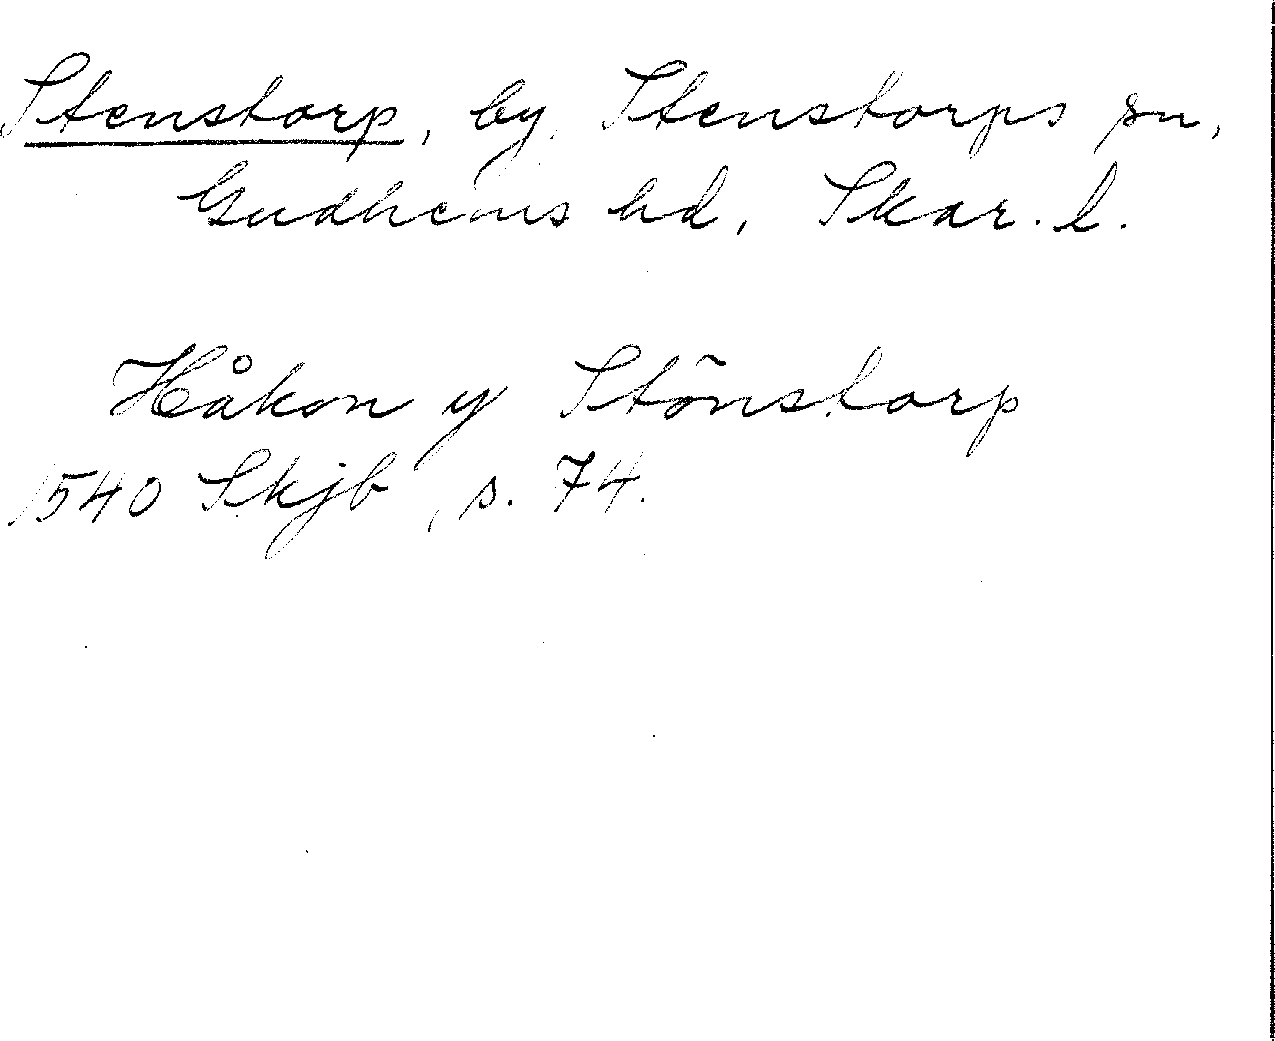 Stenstorp, by, Stenstorps sn,
Gudhems hd, Skar. l.
Håkon y Stõnstorp
1540 Skjb, s. 74.